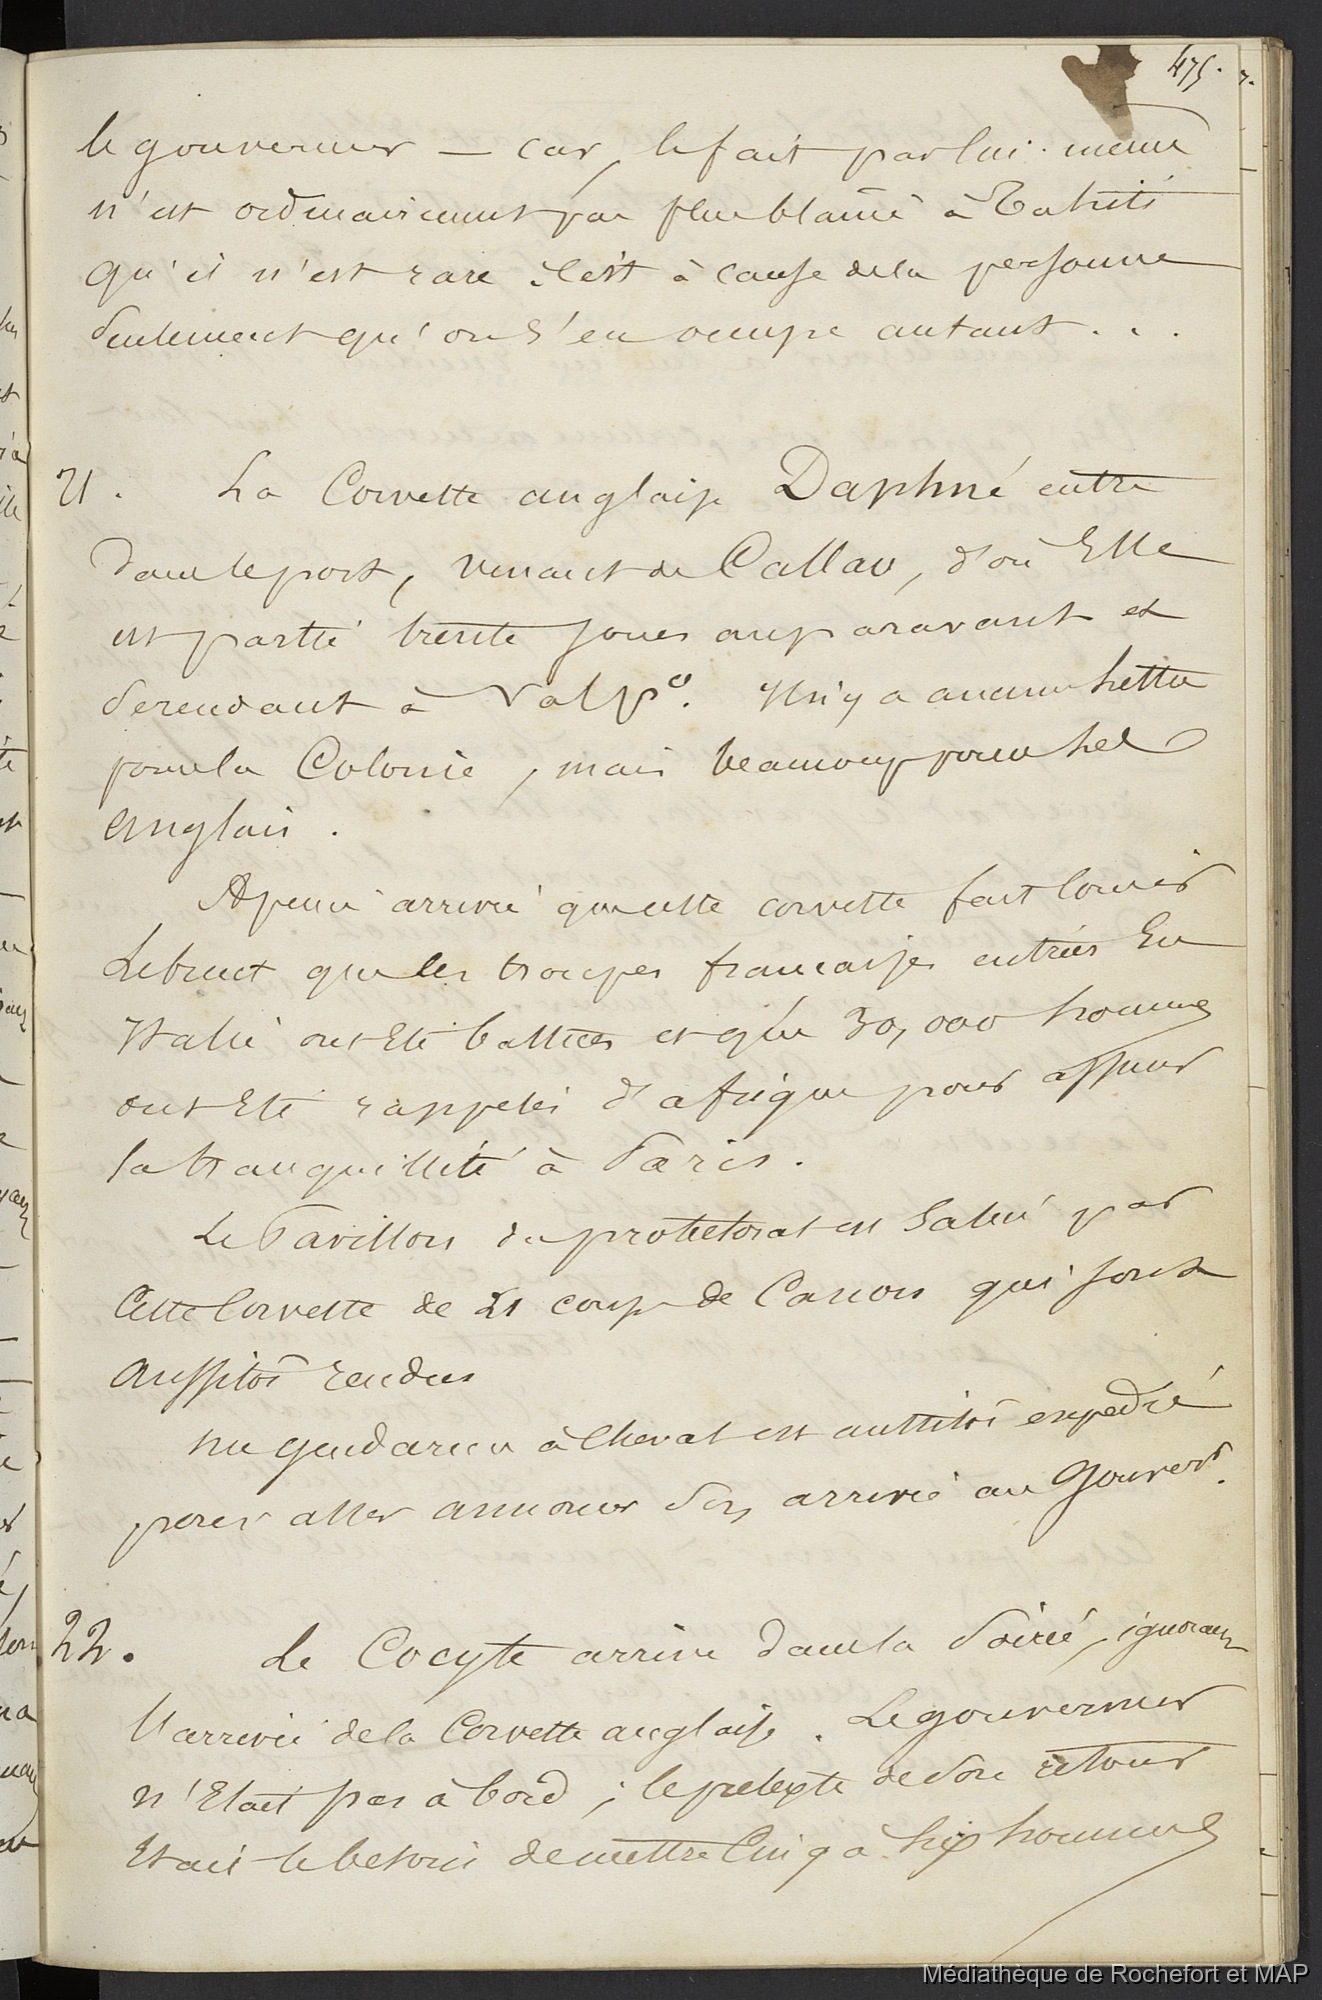 475.
le gouverneur — car, le fait par lui-même
n'est ordinairement pas plus blamé à Tahiti
qu'il n'est rare. C'est à cause de la personne
seulement qu'on s'en occupe autant . . .
21. La Corvette anglaise Daphné entre
dans le port, venant de Callao, d'où Elle
est partie trente jours auparavant et
se rendant à Valpo. Il n'y a aucune lettre
pour la Colonie, mais beaucoup pour les
anglais.
A peine arrivée que cette corvette fait courir
Le bruit que les troupes françaises entrées En
Italie ont Eté battues et que 30,000 hommes
ont Eté rappelés d'afrique pour assurer
la tranquillité à Paris.
Le Pavillon du protectorat est Salué par
Cette Corvette de 21 coups de Canon qui sont
aussitôt rendus
un gendarme à Cheval est aussitôt expédié
pour aller annoncer son arrivée au Gouverr.
22. Le Cocyte arrive dans la Soirée, ignorant
l'arrivée de la Corvette anglaise. Le gouverneur
n'Etait pas à bord; le prétexte de son retour
Etait le besoin de mettre Cinq à Six hommes
Médiathèque de Rochefort et MAP